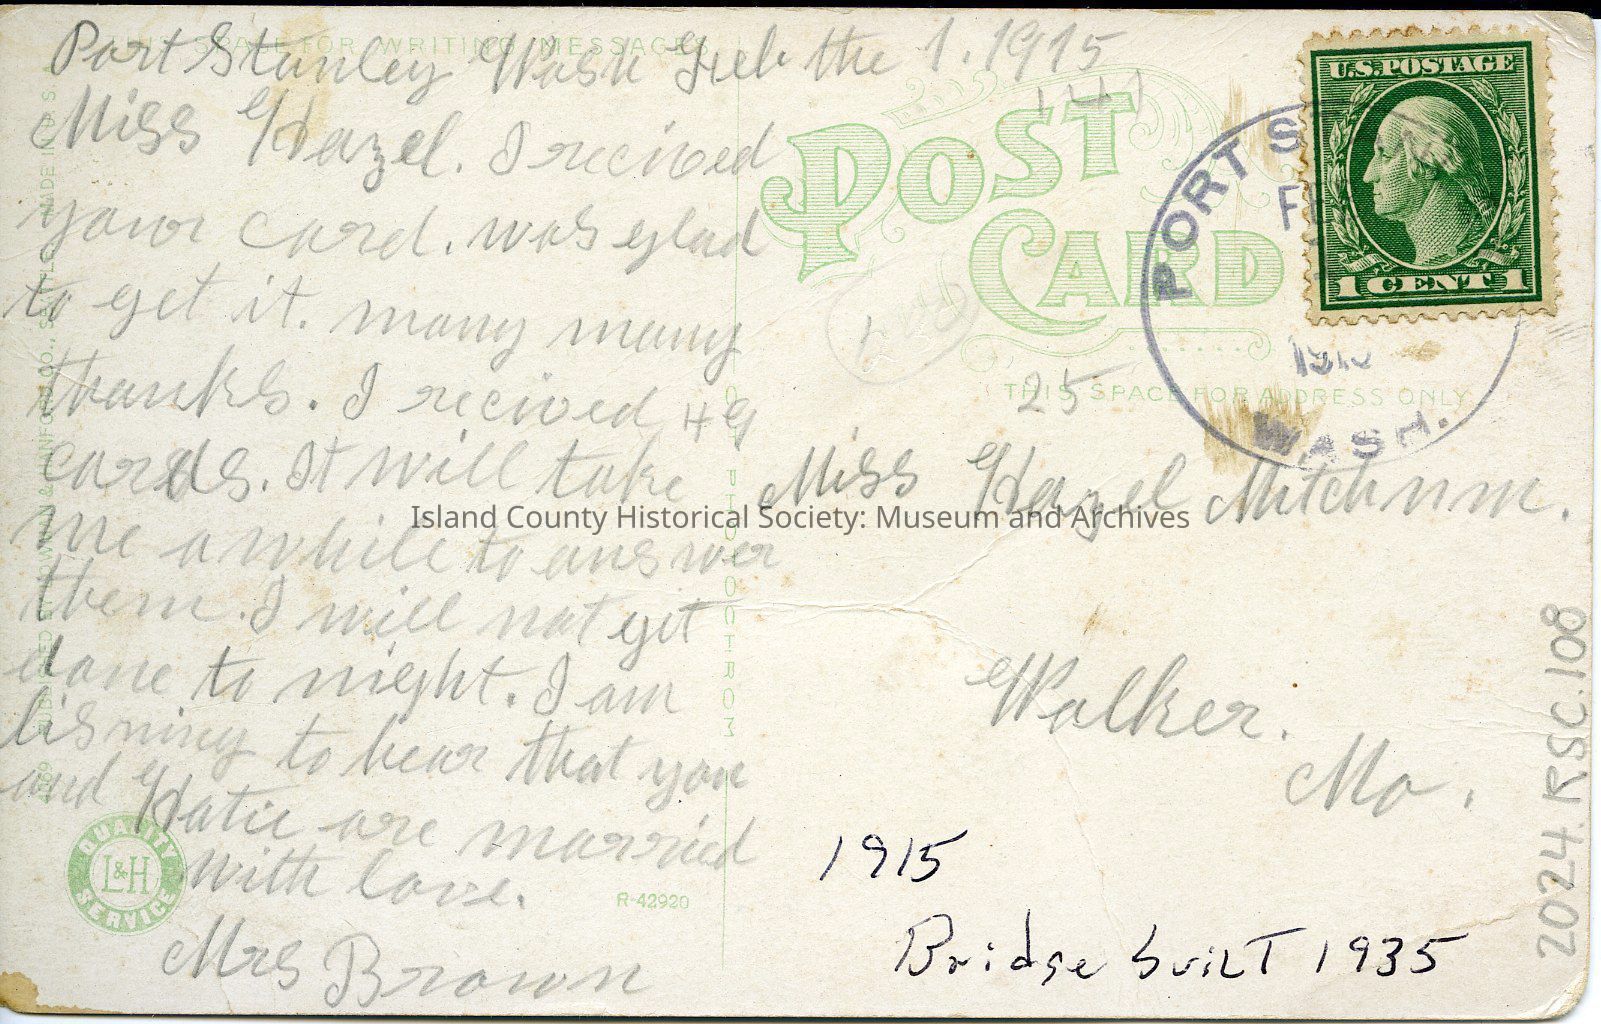 THIS SPACE FOR WRITING MESSAGES
Port Stanley Wash Feb the 1. 1915
Miss Hazel. I recived
your card. was glad
to get it. many many
thanks. I recived 49
cards. It will take
me awhile to answer
them. I will not get
done to night. I am
lisning to hear that you
and Hatie are married
With love.
Mrs Brown
QUALITY
L&H
SERVICE
R-42920
MADE IN U.S.A.
POST
CARD
THIS SPACE FOR ADDRESS ONLY
25
U.S. POSTAGE
1 CENT 1
PORT S
WASH.
Miss Hazel Mitchum.
Walker.
Mo.
1915
Bridge built 1935
2024.RSC.108
Island County Historical Society: Museum and Archives